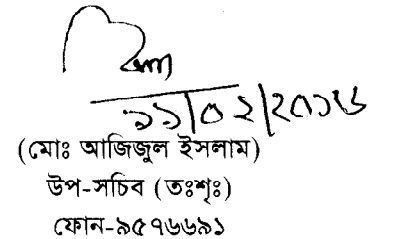 ১১/০২/২০১৬
(মোঃ আজিজুল ইসলাম)
উপ-সচিব (তঃশৃঃ)
ফোন-৯৫৭৬৬৯১